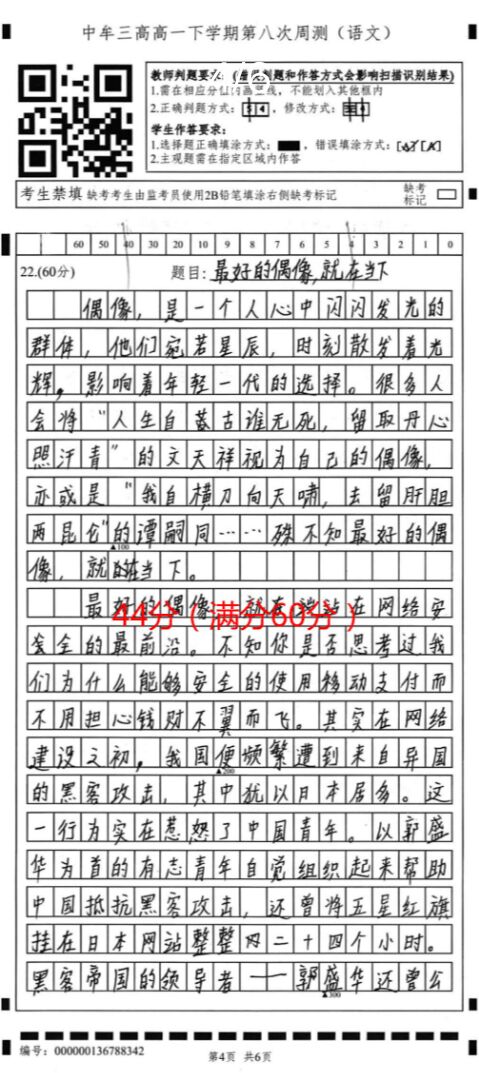 中牟三高高一下学期第八次周测（语文）
教师判题要求：
判题和作答方式会影响扫描识别结果)
1.需在相应分值内画竖线，不能划入其他框内
2.正确判题方式： 修改方式：
学生作答要求:
1.选择题正确填涂方式： 错误填涂方式：
2.主观题需在指定区域内作答
考生禁填 缺考考生由监考员使用2B铅笔填涂右侧缺考标记
缺考
标记
60 50 40 30 20 10 9 8 7 6 5 4 3 2 1 0
22.(60分) 题目: 最好的偶像,就在当下
偶像，是一个人心中闪闪发光的
群体，他们宛若星辰，时刻散发着光
辉，影响着年轻一代的选择。很多人
会将“人生自古谁无死，留取丹心
照汗青”的文天祥视为自己的偶像，
亦或是“我自横刀向天啸，去留肝胆
两昆仑”的谭嗣同……殊不知最好的偶
▲100
像，就在当下。
最好的偶像，就在站在网络安
44分（满分60分）
全的最前沿。不知你是否思考过我
们为什么能够安全的使用移动支付而
不用担心钱财不翼而飞。其实在网络
建设之初，我国便频繁遭到来自异国
▲200
的黑客攻击，其中犹以日本居多。这
一行为实在惹怒了中国青年。以郭盛
华为首的有志青年自觉组织起来帮助
中国抵抗黑客攻击，还曾将五星红旗
挂在日本网站整整二十四个小时。
黑客帝国的领导者——郭盛华还曾公
▲300
编号：000000136788342
第4页 共6页